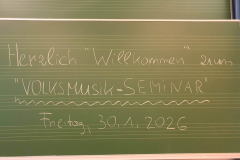 Herzlich "Willkommen" zum
"VOLKSMUSIK-SEMINAR"
Freitag, 30.1.2026